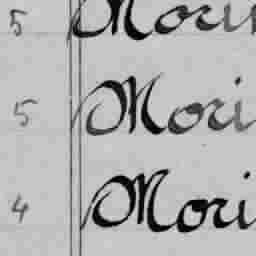 5 Mori
5 Mori
4 Mori